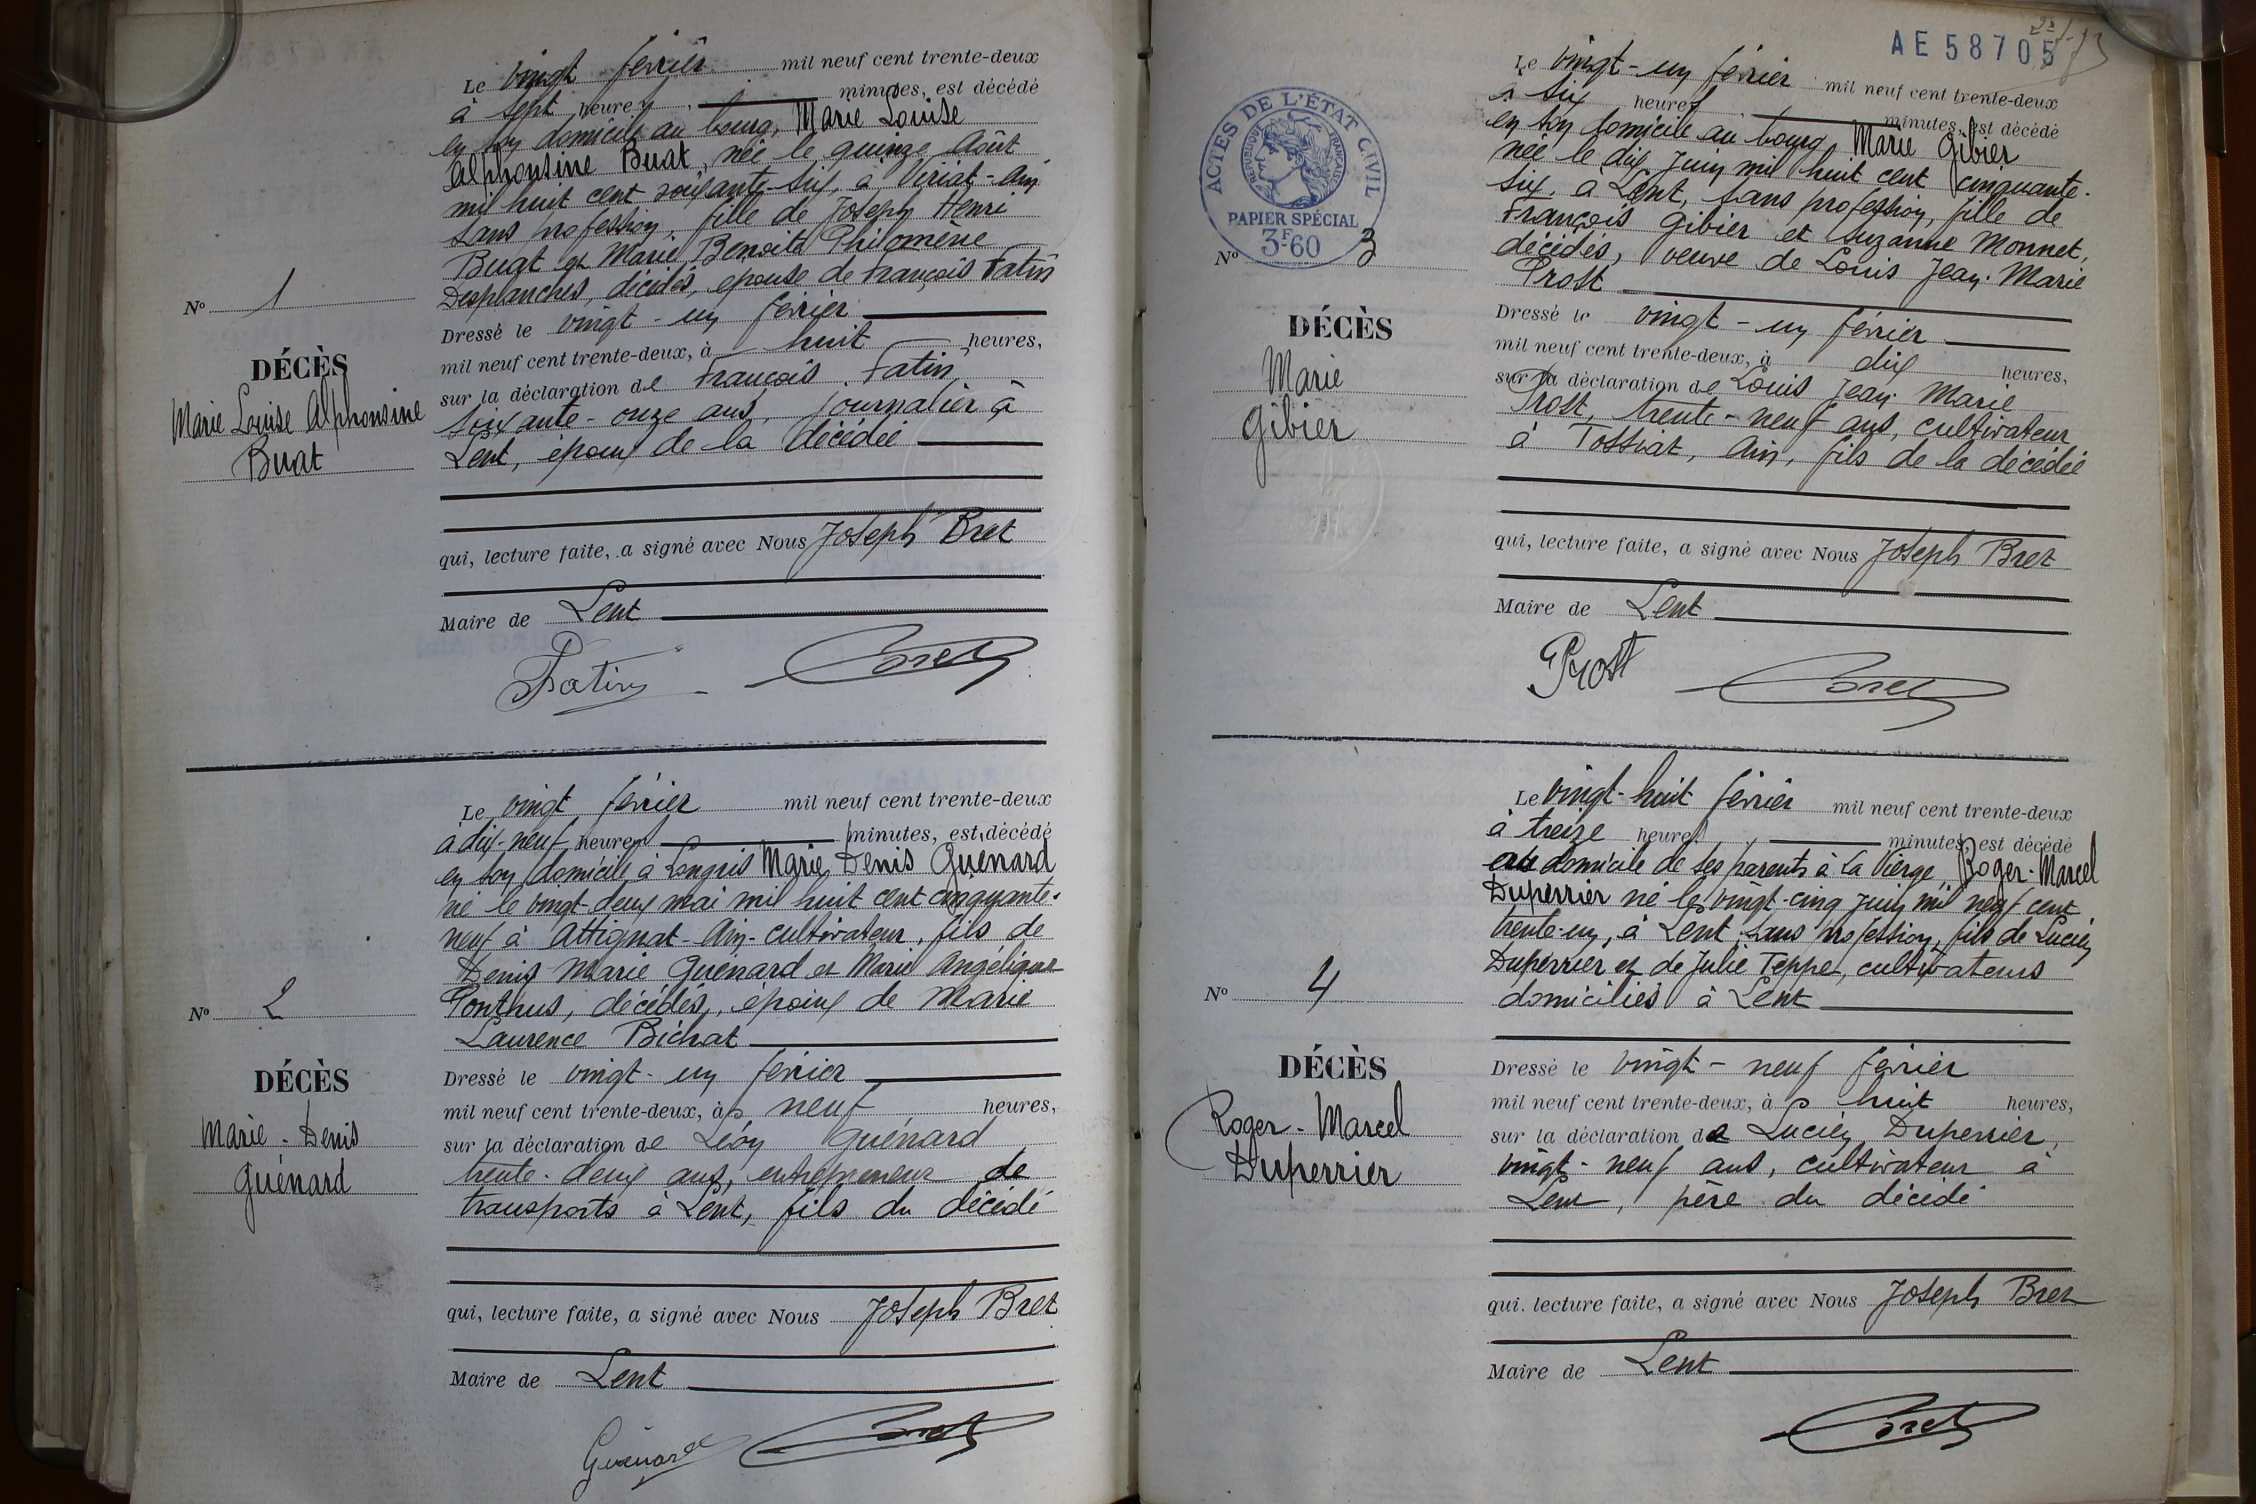 Le vingt février mil neuf cent trente-deux
à sept heures minutes, est décédé
en son domicile au bourg, Marie Louise
Alphonsine Buat, née le quinze Août
mil huit cent soixante-six, à Viriat-Ain
sans profession, fille de Joseph Henri
Buat et Marie Benoite Philomène
Desplanches, décédés, épouse de François Fatin
Nº 1
DÉCÈS
Marie Louise Alphonsine
Buat
Dressé le vingt-un février
mil neuf cent trente-deux, à huit heures,
sur la déclaration de François Fatin,
soixante-onze ans, journalier à
Lent, époux de la décédée
qui, lecture faite, a signé avec Nous Joseph Bret
Maire de Lent
Fatin Bret
Le vingt février mil neuf cent trente-deux
à dix-neuf heures minutes, est décédé
en son domicile à Longris Marie Denis Guénard
né le vingt-deux mai mil huit cent cinquante-
neuf à Attignat-Ain-cultivateur, fils de
Denis Marie Guénard et Marie Angélique
Ponthus, décédés, époux de Marie
Laurence Bichat
Nº 2
DÉCÈS
Marie-Denis
Guénard
Dressé le vingt-un février
mil neuf cent trente-deux, à neuf heures,
sur la déclaration de Léon Guénard
trente-deux ans, entrepreneur de
transports à Lent, fils du décédé
qui, lecture faite, a signé avec Nous Joseph Bret
Maire de Lent
Guénard Bret
AE 58705
ACTES DE L'ÉTAT CIVIL
RÉPUBLIQUE FRANÇAISE
PAPIER SPÉCIAL
3F60
Le vingt-un février mil neuf cent trente-deux
à six heures minutes, est décédé
en son domicile au bourg Marie Gibier
née le dix juin mil huit cent cinquante-
six, à Lent, sans profession, fille de
François Gibier et Suzanne Monnet,
décédés, veuve de Louis Jean-Marie
Prost
Nº 3
DÉCÈS
Marie
Gibier
Dressé le vingt-un février
mil neuf cent trente-deux, à dix heures,
sur la déclaration de Louis Jean Marie
Prost, trente-neuf ans, cultivateur
à Tossiat, Ain, fils de la décédée
qui, lecture faite, a signé avec Nous Joseph Bret
Maire de Lent
Prost Bret
Le vingt-huit février mil neuf cent trente-deux
à treize heures minutes, est décédé
au domicile de ses parents à La Vierge, Roger-Marcel
Duperrier né le vingt-cinq juin mil neuf cent
trente-un, à Lent, sans profession, fils de Lucien
Duperrier et de Julie Teppe, cultivateurs
domiciliés à Lent
Nº 4
DÉCÈS
Roger-Marcel
Duperrier
Dressé le vingt-neuf février
mil neuf cent trente-deux, à huit heures,
sur la déclaration de Lucien Duperrier,
vingt-neuf ans, cultivateur à
Lent, père du décédé
qui, lecture faite, a signé avec Nous Joseph Bret
Maire de Lent
Bret